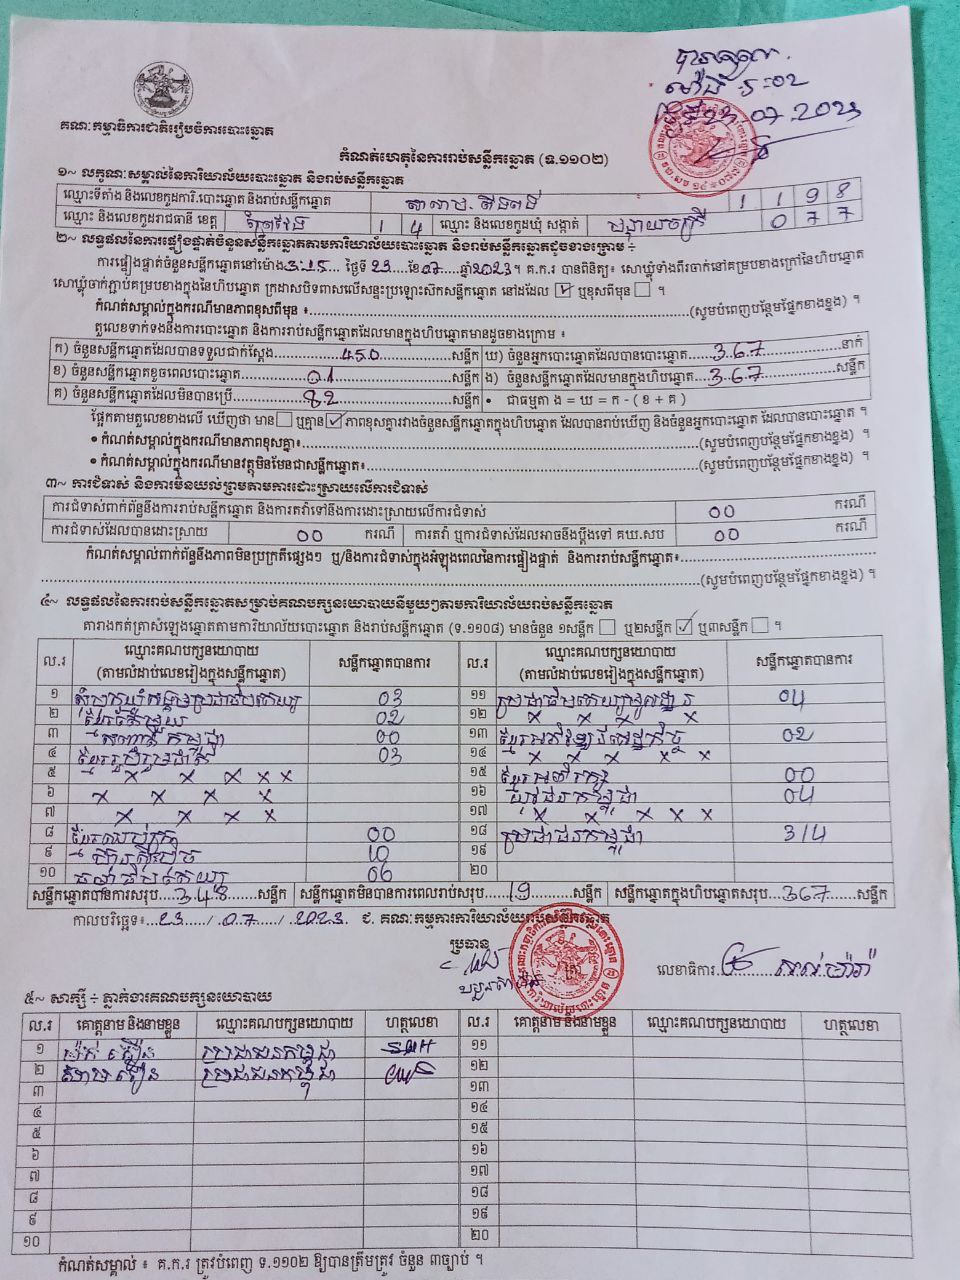 បានឃើញ
ម៉ោង 5:02
07.2023
គណៈកម្មាធិការជាតិរៀបចំការបោះឆ្នោត
កំណត់ហេតុនៃការរាប់សន្លឹកឆ្នោត (ទ.១១០២)
១~ លក្ខណៈសម្គាល់នៃការិយាល័យបោះឆ្នោត និងរាប់សន្លឹកឆ្នោត
ឈ្មោះទីតាំង និងលេខកូដការិ.បោះឆ្នោត និងរាប់សន្លឹកឆ្នោត 1 1 9 8
ឈ្មោះ និងលេខកូដរាជធានី ខេត្ត ព្រៃវែង 1 4 ឈ្មោះ និងលេខកូដឃុំ សង្កាត់ 0 7 7
២~ លទ្ធផលនៃការផ្ទៀងផ្ទាត់ចំនួនសន្លឹកឆ្នោតតាមការិយាល័យបោះឆ្នោត និងរាប់សន្លឹកឆ្នោតដូចខាងក្រោម ÷
ការផ្ទៀងផ្ទាត់ចំនួនសន្លឹកឆ្នោតនៅម៉ោង 3:25 ថ្ងៃទី 23 ខែ 07 ឆ្នាំ 2023។ គ.ក.រ បានពិនិត្យ៖ សោឃ្លុំទាំងពីរចាក់នៅគម្របខាងក្រៅនៃហិបឆ្នោត
សោឃ្លុំចាក់ភ្ជាប់គម្របខាងក្នុងនៃហិបឆ្នោត ក្រដាសបិទពាសលើសន្ទះប្រឡោះសឹកសន្លឹកឆ្នោត នៅដដែល ☑ ឬខុសពីមុន ☐ ។
កំណត់សម្គាល់ក្នុងករណីមានភាពខុសពីមុន ៖ (សូមបំពេញបន្ថែមផ្នែកខាងខ្នង) ។
តួលេខទាក់ទងនឹងការបោះឆ្នោត និងការរាប់សន្លឹកឆ្នោតដែលមានក្នុងហិបឆ្នោតមានដូចខាងក្រោម ៖
ក) ចំនួនសន្លឹកឆ្នោតដែលបានទទួលជាក់ស្តែង 450 សន្លឹក ឃ) ចំនួនអ្នកបោះឆ្នោតដែលបានបោះឆ្នោត 367 នាក់
ខ) ចំនួនសន្លឹកឆ្នោតខូចពេលបោះឆ្នោត 01 សន្លឹក ង) ចំនួនសន្លឹកឆ្នោតដែលមានក្នុងហិបឆ្នោត 367 សន្លឹក
គ) ចំនួនសន្លឹកឆ្នោតដែលមិនបានប្រើ 82 សន្លឹក • ជាធម្មតា ង = ឃ = ក - ( ខ + គ )
ផ្អែកតាមតួលេខខាងលើ ឃើញថា មាន ☐ ឬគ្មាន ☑ ភាពខុសគ្នារវាងចំនួនសន្លឹកឆ្នោតក្នុងហិបឆ្នោត ដែលបានរាប់ឃើញ និងចំនួនអ្នកបោះឆ្នោត ដែលបានបោះឆ្នោត ។
• កំណត់សម្គាល់ក្នុងករណីមានភាពខុសគ្នា៖ (សូមបំពេញបន្ថែមផ្នែកខាងខ្នង) ។
• កំណត់សម្គាល់ក្នុងករណីមានវត្ថុមិនមែនជាសន្លឹកឆ្នោត៖ (សូមបំពេញបន្ថែមផ្នែកខាងខ្នង) ។
៣~ ការជំទាស់ និងការមិនយល់ព្រមតាមការដោះស្រាយលើការជំទាស់
ការជំទាស់ពាក់ព័ន្ធនឹងការរាប់សន្លឹកឆ្នោត និងការតវ៉ាទៅនឹងការដោះស្រាយលើការជំទាស់ 00 ករណី
ការជំទាស់ដែលបានដោះស្រាយ 00 ករណី ការតវ៉ា ឬការជំទាស់ដែលអាចនឹងប្តឹងទៅ គឃ.សប 00 ករណី
កំណត់សម្គាល់ពាក់ព័ន្ធនឹងភាពមិនប្រក្រតីផ្សេងៗ ឬ/និងការជំទាស់ក្នុងអំឡុងពេលនៃការផ្ទៀងផ្ទាត់ និងការរាប់សន្លឹកឆ្នោត៖
(សូមបំពេញបន្ថែមផ្នែកខាងខ្នង) ។
៤~ លទ្ធផលនៃការរាប់សន្លឹកឆ្នោតសម្រាប់គណបក្សនយោបាយនីមួយៗតាមការិយាល័យរាប់សន្លឹកឆ្នោត
តារាងកត់ត្រាសំឡេងឆ្នោតតាមការិយាល័យបោះឆ្នោត និងរាប់សន្លឹកឆ្នោត (ទ.១១០៨) មានចំនួន ១សន្លឹក ☐ ឬ២សន្លឹក ☑ ឬ៣សន្លឹក ☐ ។
ល.រ ឈ្មោះគណបក្សនយោបាយ សន្លឹកឆ្នោតបានការ ល.រ ឈ្មោះគណបក្សនយោបាយ សន្លឹកឆ្នោតបានការ
(តាមលំដាប់លេខរៀងក្នុងសន្លឹកឆ្នោត) (តាមលំដាប់លេខរៀងក្នុងសន្លឹកឆ្នោត)
១ សំបុកឃ្មុំសង្គមប្រជាធិបតេយ្យ 03 ១១ ប្រជាធិបតេយ្យមូលដ្ឋាន 04
២ ខ្មែរតែមួយ 02 ១២ x x x x
៣ សញ្ជាតិកម្ពុជា 00 ១៣ ខ្មែរអភិវឌ្ឍន៍សេដ្ឋកិច្ច 02
៤ ខ្មែររួបរួមជាតិ 03 ១៤ x x x x x
៥ x x x x x ១៥ ខ្មែរអភិរក្ស 00
៦ x x x x ១៦ យុវជនកម្ពុជា 04
៧ x x x x ១៧ x x x x x
៨ ខ្មែរឈប់ក្រ 00 ១៨ ប្រជាជនកម្ពុជា 314
៩ ហ៊្វុនស៊ិនប៉ិច 10 ១៩
១០ ធម្មាធិបតេយ្យ 06 ២០
សន្លឹកឆ្នោតបានការសរុប 348 សន្លឹក សន្លឹកឆ្នោតមិនបានការពេលរាប់សរុប 19 សន្លឹក សន្លឹកឆ្នោតក្នុងហិបឆ្នោតសរុប 367 សន្លឹក
កាលបរិច្ឆេទ៖ 23 / 07 / 2023 ជ. គណៈកម្មការការិយាល័យរាប់សន្លឹកឆ្នោត
ប្រធាន
លេខាធិការ
៥~ សាក្សី ÷ ភ្នាក់ងារគណបក្សនយោបាយ
ល.រ គោត្តនាម និងនាមខ្លួន ឈ្មោះគណបក្សនយោបាយ ហត្ថលេខា ល.រ គោត្តនាម និងនាមខ្លួន ឈ្មោះគណបក្សនយោបាយ ហត្ថលេខា
១ ប្រជាជនកម្ពុជា ១១
២ ប្រជាជនកម្ពុជា ១២
៣ ១៣
៤ ១៤
៥ ១៥
៦ ១៦
៧ ១៧
៨ ១៨
៩ ១៩
១០ ២០
កំណត់សម្គាល់ ៖ គ.ក.រ ត្រូវបំពេញ ទ.១១០២ ឱ្យបានត្រឹមត្រូវ ចំនួន ៣ច្បាប់ ។